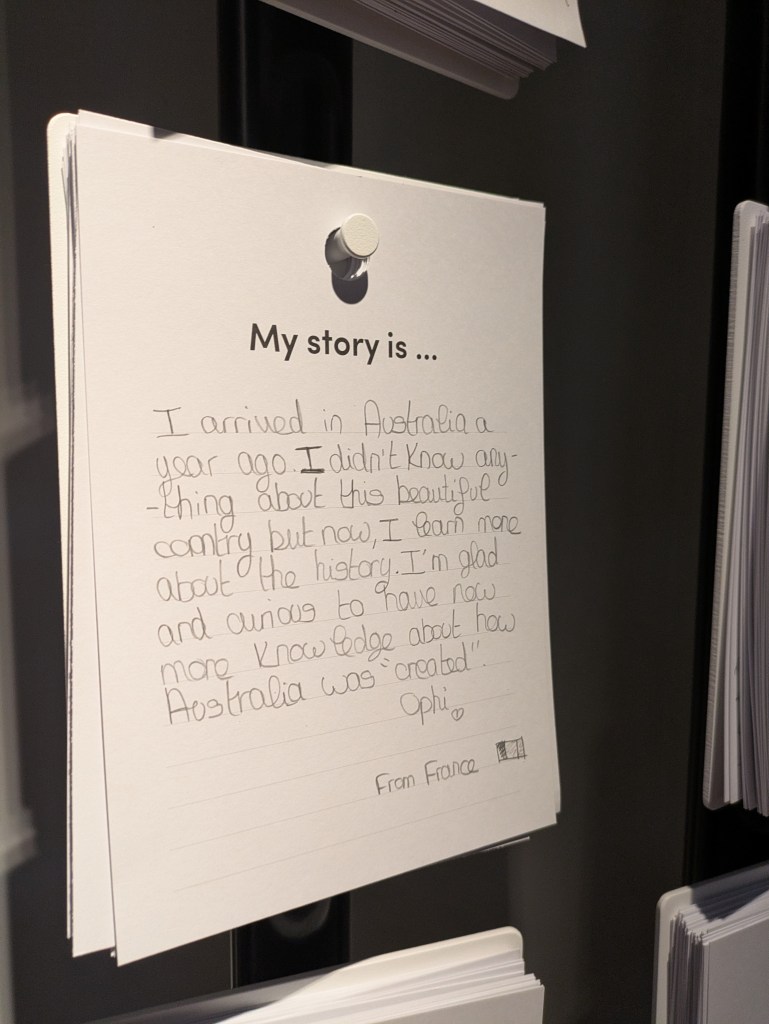 My story is ...
I arrived in Australia a
year ago. I didn't know any-
-thing about this beautiful
country but now, I learn more
about the history. I'm glad
and curious to have now
more knowledge about how
Australia was "created".
Ophi
From France